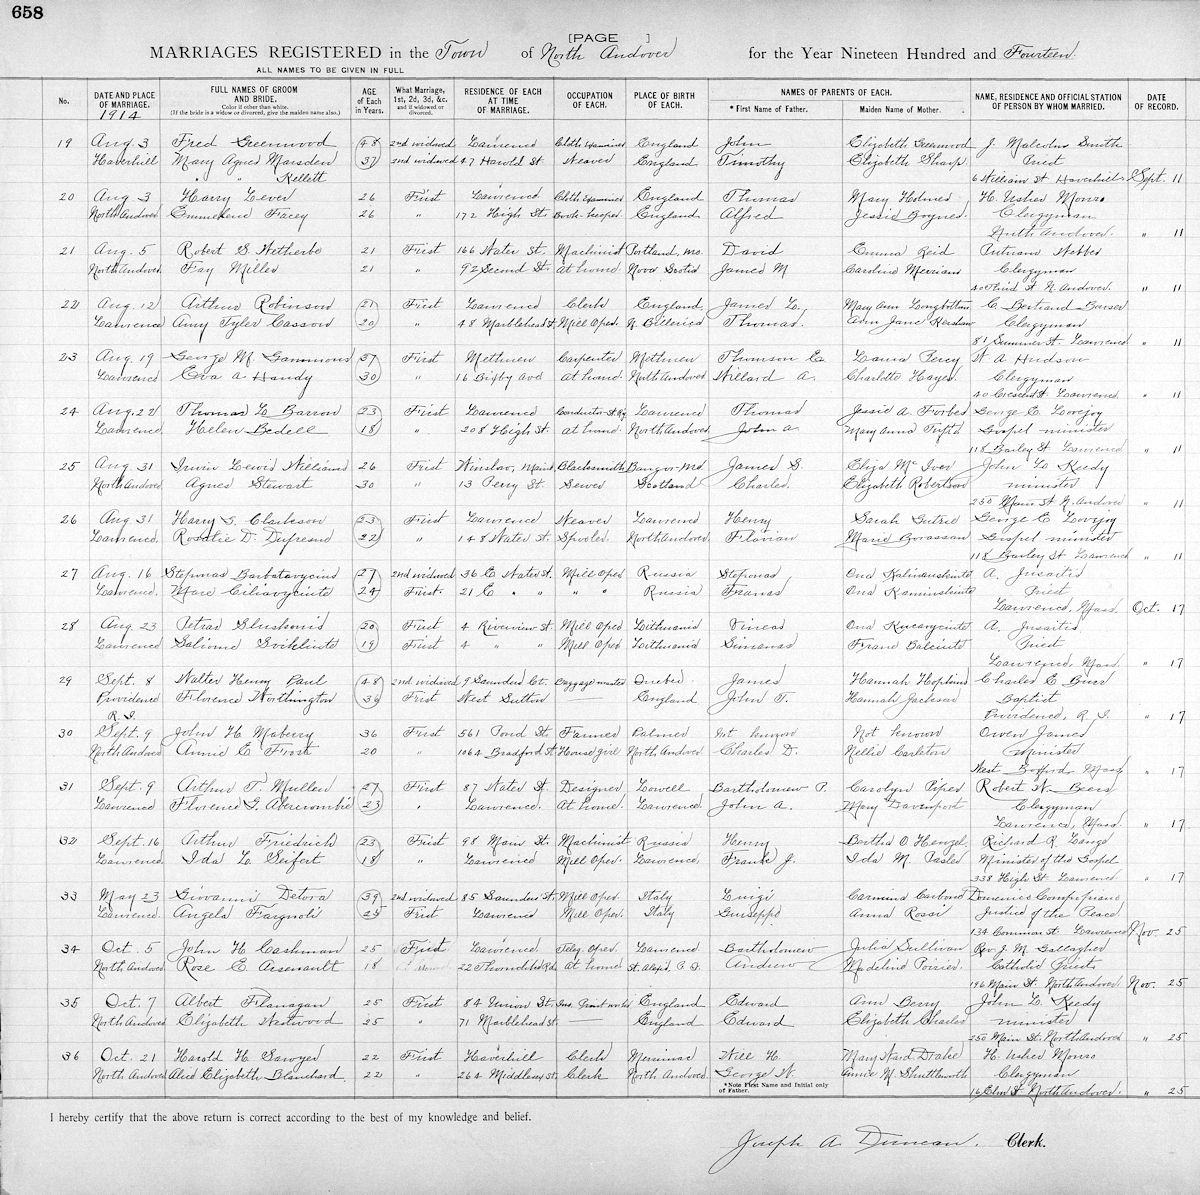 658
[PAGE ]
MARRIAGES REGISTERED in the Town of North Andover for the Year Nineteen Hundred and Fourteen.
ALL NAMES TO BE GIVEN IN FULL
No. DATE AND PLACE OF MARRIAGE. 1914 FULL NAMES OF GROOM AND BRIDE. Color if other than white. (If the bride is a widow or divorced, give the maiden name also.) AGE of Each in Years. What Marriage, 1st, 2d, 3d, &c. and if widowed or divorced. RESIDENCE OF EACH AT TIME OF MARRIAGE. OCCUPATION OF EACH. PLACE OF BIRTH OF EACH. NAMES OF PARENTS OF EACH. * First Name of Father. Maiden Name of Mother. NAME, RESIDENCE AND OFFICIAL STATION OF PERSON BY WHOM MARRIED. DATE OF RECORD.
19 Aug. 3 Fred Greenwood 48 2nd widowed Lawrence Cloth Examiner England John Elizabeth Greenwood J. Malcolm Smith
Haverhill Mary Agnes Marsden 37 2nd widowed 47 Harold St Weaver England Timothy Elizabeth Sharp Priest
" " Kellett 6 William St Haverhill Sept. 11
20 Aug. 3 Harry Lever 26 First Lawrence Cloth Examiner England Thomas Mary Holmes H. Usher Monro
North Andover Emmeline Facey 26 " 172 High St. Book-keeper England Alfred Jessie Boynes Clergyman
North Andover. " 11
21 Aug. 5 Robert S. Wetherbe 21 First 166 Water St. Machinist Portland, Me. David Emma Reid Putnam Webber
North Andover Fay Miller 21 " 92 Second St. at home Nova Scotia James M Caroline Merriam Clergyman
40 Third St N. Andover. " 11
22 Aug. 12 Arthur Robinson 21 First Lawrence Clerk England James L. Mary Ann Longbottom C. Bertrand Bowser
Lawrence Amy Tyler Casson 20 " 48 Marblehead St. Mill Oper. N. Billerica Thomas. Ann Jane Kershaw Clergyman
81 Summer St. Lawrence " 11
23 Aug. 19 George M. Gammons 37 First Methuen Carpenter Methuen Thomson E. Laura Percy W A Hudson
Lawrence Eva A Handy 30 " 16 Bixby Ave at home North Andover Willard A. Charlotte Hayes. Clergyman
40 Crescent St. Lawrence " 11
24 Aug. 22 Thomas L. Barron 23 First Lawrence Conductor St Ry. Lawrence Thomas Jessie A. Forbes George E. Lovejoy
Lawrence. Helen Bedell 18 " 208 High St. at home. North Andover John A Mary Anna Gospel minister
118 Bailey St. Lawrence " 11
25 Aug. 31 Irwin Lewis Williams 26 First Winslow, Maine Blacksmith Bangor Me. James S. Eliza McIver John L. Keedy
North Andover Agnes Stewart 30 " 13 Perry St. Sewer Scotland Charles. Elizabeth Robertson minister
250 Main St N. Andover " 11
26 Aug. 31 Harry S. Clarkson 23 First Lawrence Weaver Lawrence Henry Sarah George E. Lovejoy
Lawrence. Rosalie D. Dufresne 22 " 148 Water St. Spooler North Andover. Flavian Marie Brrassau Gospel minister
118 Bailey St Lawrence " 11
27 Aug. 16 Steponas Barbatavycius 27 2nd widowed 36 E Water St. Mill Oper Russia Steponas Ona Kalinauskiute A. Jusaitis
Lawrence. Mare Ciliavyciute 24 First. 21 E " " " " Russia Franas Ona Raminskiute Priest
Lawrence, Mass. Oct. 17
28 Aug. 23 Petras Slushonis 20 First 4 Riverview St. Mill Oper Lithuania Vincas Ona A. Jusaitis
Lawrence Salione 19 First 4 " " Mill Oper Lithuania Simanas Frane Balciute Priest
Lawrence, Mass. " 17
29 Sept. 8 Walter Henry Paul 48 2nd widowed 9 Saunders Ct. baggage master Quebec James Hannah Hopkins Charles E. Burr
Providence Florence Worthington 36 First West Sutton — England John T. Hannah Jackson Baptist
R. I. Providence, R. I. " 17
30 Sept. 9 John H Maberry 36 First 561 Pond St. Farmer Palmer Not known Not known Owen James
North Andover Annie E Frost 20 " 1064 Bradford St. House girl North Andover Charles D. Nellie Carleton Minister
West Boxford Mass " 17
31 Sept. 9 Arthur T. Mullen 27 First 87 Water St. Designer Lowell Bartholomew P. Carolyn Piper Robert W. Beers
Lawrence Florence G. Abercrombie 23 " Lawrence. At home. Lawrence. John A. Mary Davenport Clergyman
Lawrence, Mass. " 17
32 Sept. 16 Arthur Friedrich 23 First 98 Main St. Machinist Russia Henry Bertha O. Henzel Richard R. Lange
Lawrence Ida L. Seifert 18 " Lawrence Mill Oper. Lawrence. Frank J. Ida M. Pester Minister of the Gospel
338 High St. Lawrence " 17
33 May 23 Giovanni Detora 39 2nd widowed 85 Saunders St. Mill Oper. Italy Luigi Carmina Carbone Domenico
Lawrence. Angela Fargnoli 25 First Lawrence Mill Oper. Italy Guiseppe Anna Rossi Justice of the Peace
134 Common St. Lawrence Nov. 25
34 Oct. 5 John H. Cashman 25 First Lawrence Teleg. Oper. Lawrence Bartholomew Julia Sullivan Rev. J. M. Gallagher
North Andover Rose E. Arsenault 18 22 Thorndike Rd. at home St. Alexis, P. Q. Andrew Madeline Poirier. Catholic Priest
196 Main St. North Andover Nov. 25
35 Oct. 7 Albert Flanagan 25 First 84 Union St. England Edward Ann Berry John L. Keedy
North Andover Elizabeth Westwood 25 " 71 Marblehead St. — England Edward Elizabeth Charles minister
250 Main St. North Andover " 25
36 Oct. 21 Harold H. Sawyer 22 First Haverhill Clerk Merrimac Will H. Mary Ward Drake H. Usher Monro
North Andover Alice Elizabeth Blanchard 22 " 264 Middlesex St. Clerk North Andover. George W. Annie M Shuttleworth Clergyman
* Note First Name and Initial only of Father. 16 Elm St North Andover. " 25
I hereby certify that the above return is correct according to the best of my knowledge and belief.
Joseph A. Duncan. Clerk.